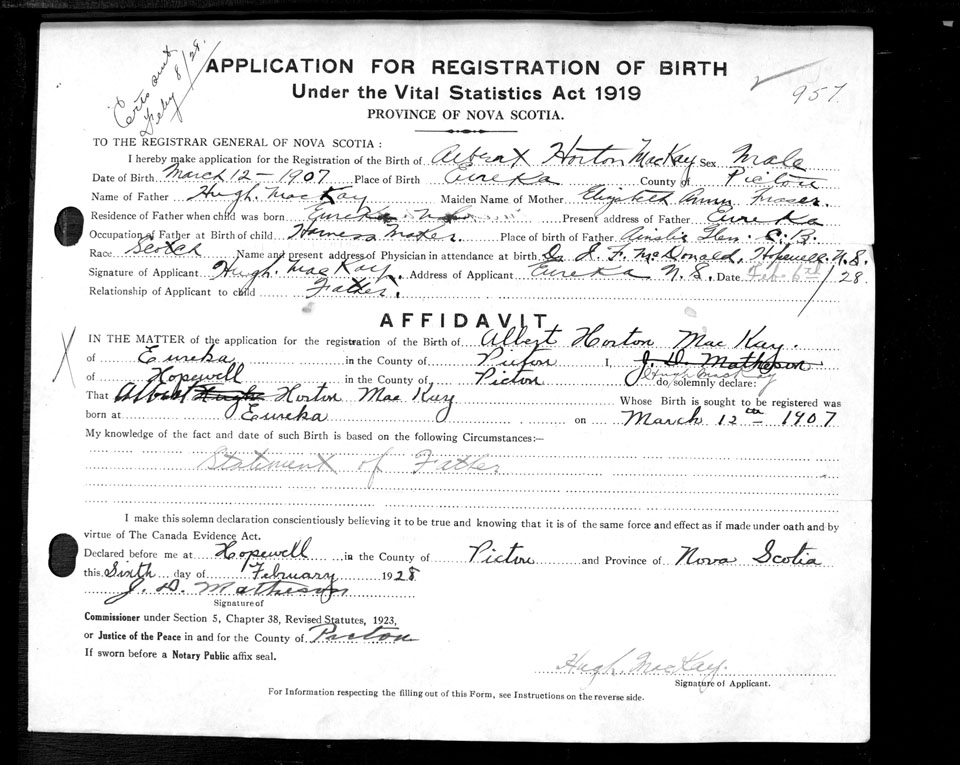 Certs sent
Feby 8/28.
957.
APPLICATION FOR REGISTRATION OF BIRTH
Under the Vital Statistics Act 1919
PROVINCE OF NOVA SCOTIA.
TO THE REGISTRAR GENERAL OF NOVA SCOTIA :
I hereby make application for the Registration of the Birth of Albert Horton MacKay Sex Male
Date of Birth March 12 - 1907 Place of Birth Eureka County of Pictou
Name of Father Hugh MacKay Maiden Name of Mother Elizabeth Fraser.
Residence of Father when child was born Eureka Present address of Father Eureka
Occupation of Father at Birth of child Harness Maker. Place of birth of Father Ainslie Glen. C.B.
Race Scotch Name and present address of Physician in attendance at birth Dr. McDonald, Hopewell. N.S.
Signature of Applicant Hugh. MacKay. Address of Applicant Eureka N.S. Date Feb. 6th/28.
Relationship of Applicant to child Father.
AFFIDAVIT
IN THE MATTER of the application for the registration of the Birth of Albert Horton MacKay.
of Eureka in the County of Pictou I, J. D. Matheson
Hugh MacKay
of Hopewell in the County of Pictou do solemnly declare:
That Albert Hugh Horton MacKay Whose Birth is sought to be registered was
born at Eureka on March 12th 1907
My knowledge of the fact and date of such Birth is based on the following Circumstances:—
Statement of Father
I make this solemn declaration conscientiously believing it to be true and knowing that it is of the same force and effect as if made under oath and by
virtue of The Canada Evidence Act.
Declared before me at Hopewell in the County of Pictou and Province of Nova Scotia
this Sixth day of February 1928
J. D. Matheson
Signature of
Commissioner under Section 5, Chapter 38, Revised Statutes, 1923,
or Justice of the Peace in and for the County of Pictou
If sworn before a Notary Public affix seal.
Hugh. MacKay.
Signature of Applicant.
For Information respecting the filling out of this Form, see Instructions on the reverse side.